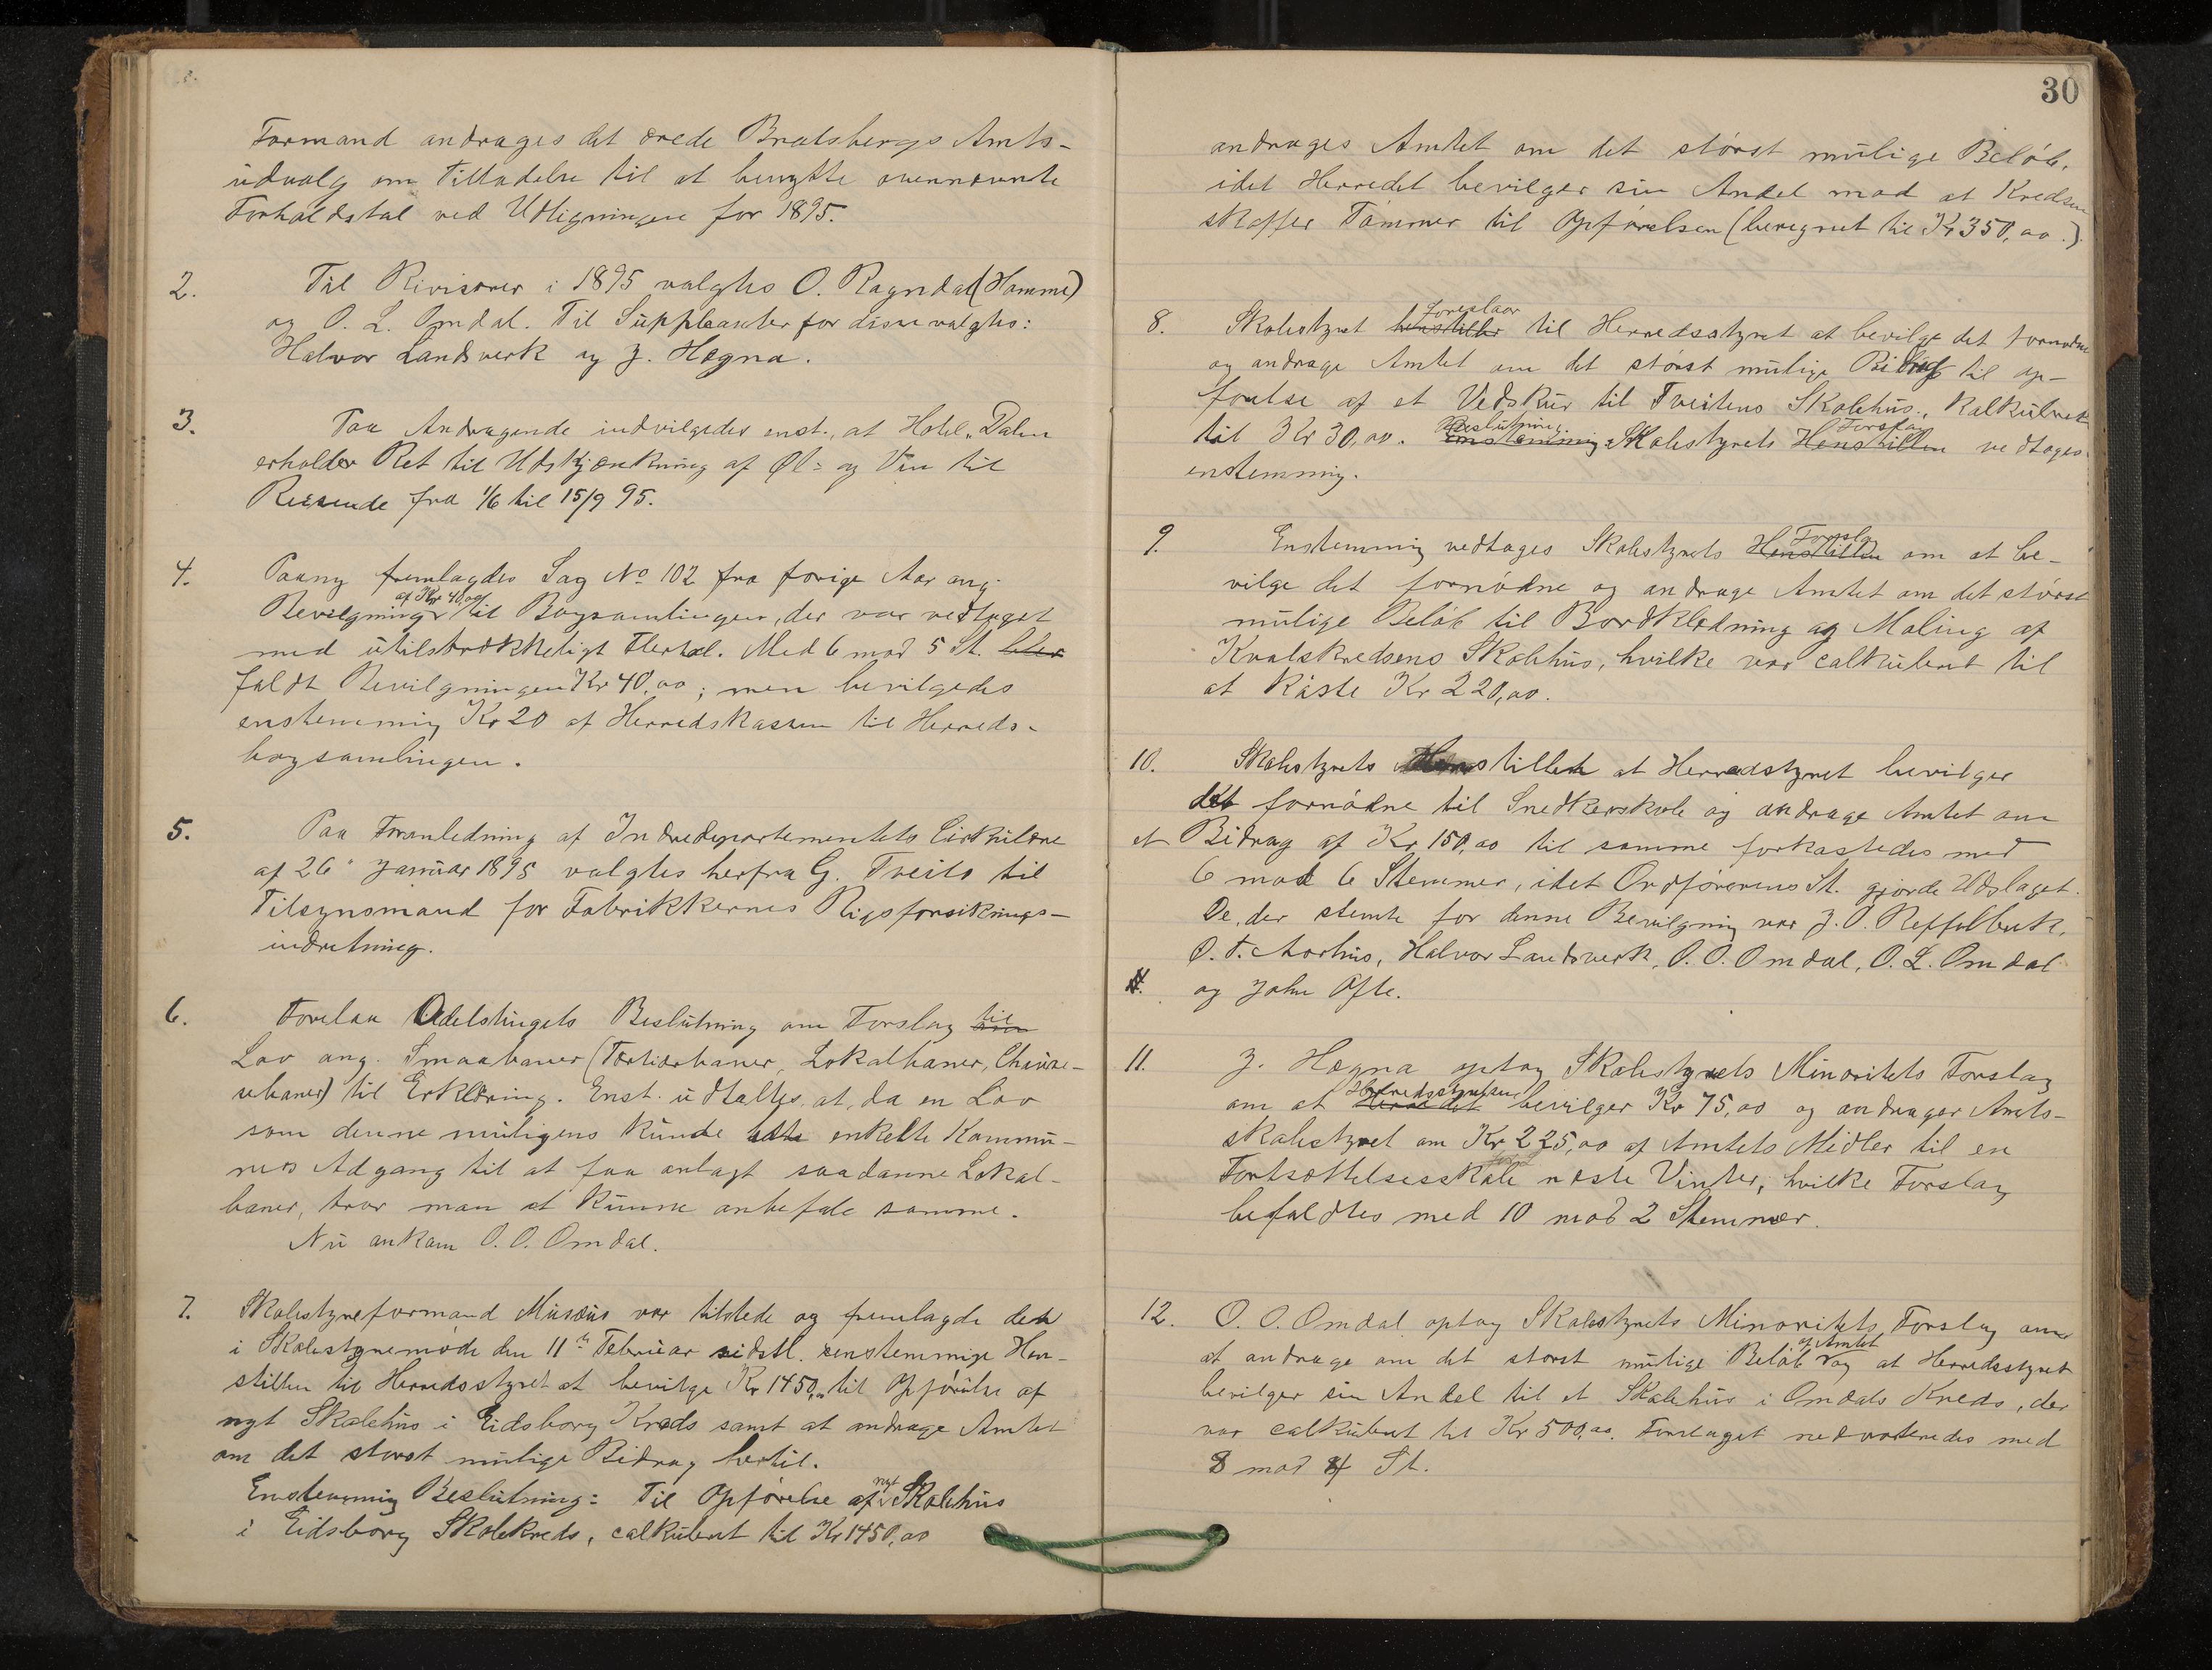 Formand andrages det ærede Bratsbergs Amts-
udvalg om Tilladelse til at benytte ovennævnte
Forholdstal ved Udligningen for 1895.
2. Til Rivisorer i 1895 valgtes O. Ragndal (Hamme)
og O. L. Omdal. Til Suppleanter for disse valgtes:
Halvor Landsverk og J. Høgna.
3. Paa Andragende indvilgedes enst., at Hotel "Dalen
erholder Ret til Udskjænkning af Øl- og Vin til
Reisende fra 1/6 til 15/9 95.
4. Paany fremlagdes Sag No 102 fra forige Aar ang.
af Kr 40,00
Bevilgning til Bogsamlingen, der var vedtaget
med utilstrækkeligt Flertal. Med 6 mod 5 St.
faldt Bevilgningen Kr 40,00; men bevilgedes
enstemmig Kr 20 af Herredskassen til Herreds-
bogsamlingen.
5. Paa Foranledning af Indredepartementets Cirkulære
af 26" Januar 1895 valgtes herfra G. Tveito til
Tilsynsmand for Fabrikkernes Rigsforsikrings-
indretning.
6. Forelaa Odelstingets Beslutning om Forslag til
Lov ang. Smaabaner (Tertiærbaner, Lokalbaner, Chause-
sebaner) til Erklæring. Enst. udtaltes, at, da en Lov
som denne muligens kunde lette enkelte Kommu-
ners Adgang til at faa anlagt saadanne Lokal-
baner, tror man at kunne anbefale samme.
Nu ankom O. O. Omdal.
7. Skolestyreformand Musæus var tilstede og fremlagde den
i Skolestyremøde den 11te Februar sidstl. enstemmige Hen-
stillen til Herredsstyret at bevilge Kr 1450,,, til Opførelse af
nyt Skolehus i Eidsborg Kreds samt at andrage Amtet
om det størst mulige Bidrag hertil.
Enstemmig Beslutning: Til Opførelse af nyt Skolehus
i Eidsborg Skolekreds, calkuleret til Kr 1450,00
30
andrages Amtet om det størst mulige Beløb,
idet Herredet bevilger sin Andel mod at Kredsen
skaffer Tømmer til Opførelsen (beregnet til Kr 350,00.)
8. Skolestyret henstiller Foreslaar til Herredsstyret at bevilge det fornødne
og andrage Amtet om det størst mulige Bidrag til op-
førelse af et Vedskur til Tveitens Skolehus, Kalkuleret
til Kr 30,00. Enstemmig Beslutning: Skolestyrets Henstillen Forslag vedtages
enstemmig.
9. Enstemmig vedtages Skolestyrets Henstillen Forslag om at be-
vilge det fornødne og andrage Amtet om det størst
mulige Beløb til Bordklædning og Maling af
Kvalskredsens Skolehus, hvilke var calkuleret til
at koste Kr 220,00.
10. Skolestyrets Henstillen at Herredstyret bevilger
det fornødne til Snedkerskole og andrage Amtet om
et Bidrag af Kr 150,00 til samme forkastedes med
6 mod 6 Stemmer, idet Ordførerens St. gjorde Udslaget.
De, der stemte for denne Bevilgning var J. O.
O. T. Aarhus, Halvor Landsverk, O. O. Omdal, O. L. Omdal
og John Ofte.
11. J. Høgna optog Skolestyrets Minoritets Forslag
om at Herredet Herredsstyret bevilger Kr 75,00 og andrager Amts-
skolestyret om Kr 225,00 af Amtets Midler til en
Fortsættelsesskole næste Vinter, hvilke Forslag
befaldtes med 10 mod 2 Stemmer.
12. O. O. Omdal optog Skolestyrets Minoritets Forslag om
at andrage om det størst mulige Beløb af Amtet og at Herredsstyret
bevilger sin Andel til et Skolehus i Omdals Kreds, der
var calkuleret til Kr 500,00. Forslaget nedvoteredes med
8 mod 4 St.